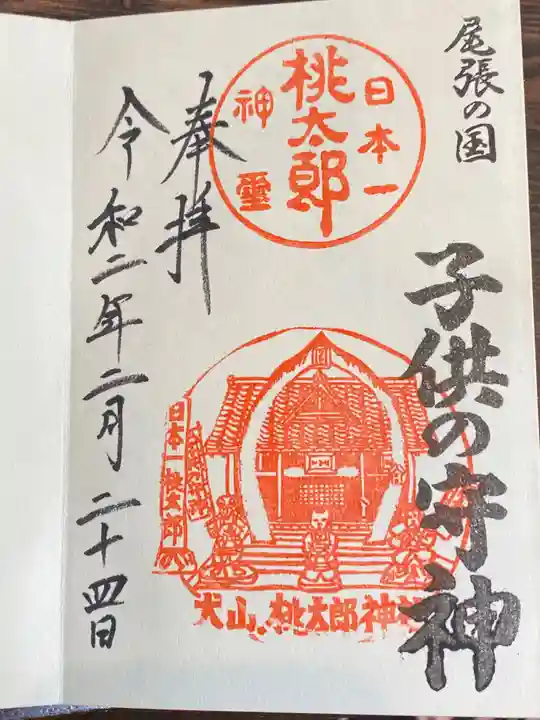 尾張の国
子供の守神
日本一
桃太郎
神璽
奉拝
令和二年二月二十四日
日本一桃太郎
犬山、桃太郎神社